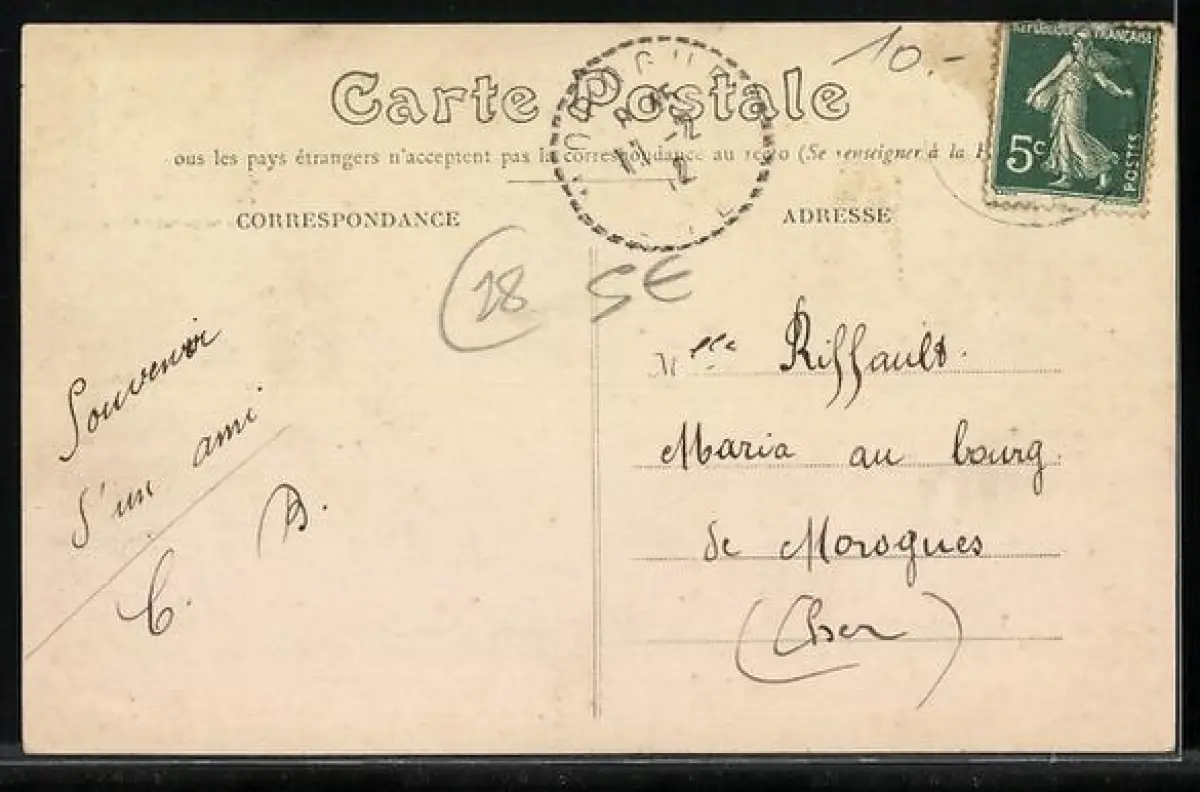 10.-
RÉPUBLIQUE FRANÇAISE
5c
POSTES
Carte Postale
ous les pays étrangers n'acceptent pas la correspondance au recto (Se renseigner à la
CORRESPONDANCE
ADRESSE
5€
Souvenir
d'un ami.
C. B.
Mlle Riffault.
Maria au bourg.
de Morogues
(Cher)